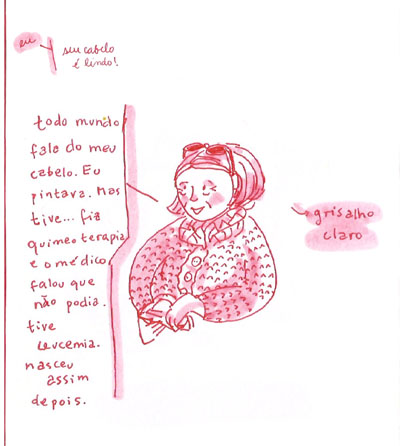 eu
seu cabelo
é lindo!
todo mundo
fala do meu
cabelo. Eu
pintava. Mas
tive... fiz
quimeoterapia
e o médico
falou que
não podia.
tive
leucemia.
nasceu
assim
depois.
grisalho
claro